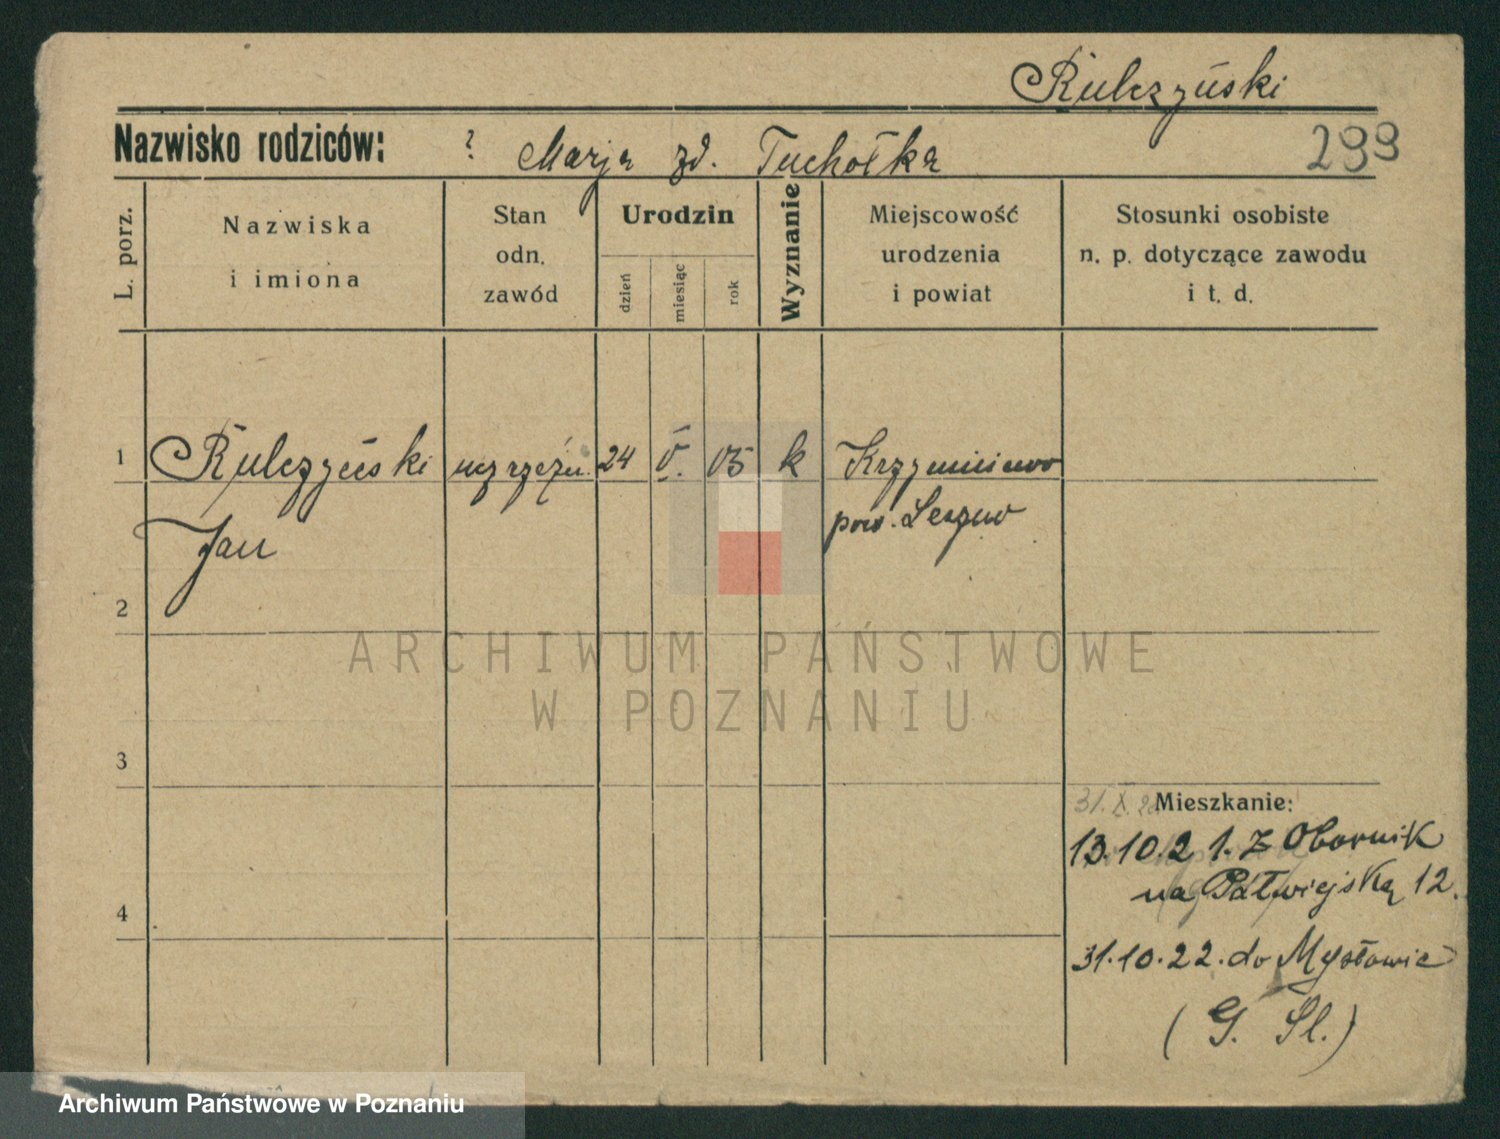 Rulczyński
Nazwisko rodziców: ? Marja zd. Tuchołka
299
L. porz.
Nazwiska
i imiona
Stan
odn.
zawód
Urodzin
dzień
miesiąc
rok
Wyznanie
Miejscowość
urodzenia
i powiat
Stosunki osobiste
n. p. dotyczące zawodu
i t. d.
1 Rulczyński ucz rzeźn. 24 V. 05 k
Jan
pow. Leszno
2
ARCHIWUM PAŃSTWOWE
W POZNANIU
3
31.X.22 Mieszkanie:
13.10.21. z Obornik
na Półwiejską 12.
4
31.10.22. do Mysłowic
(G. Śl.)
Archiwum Państwowe w Poznaniu